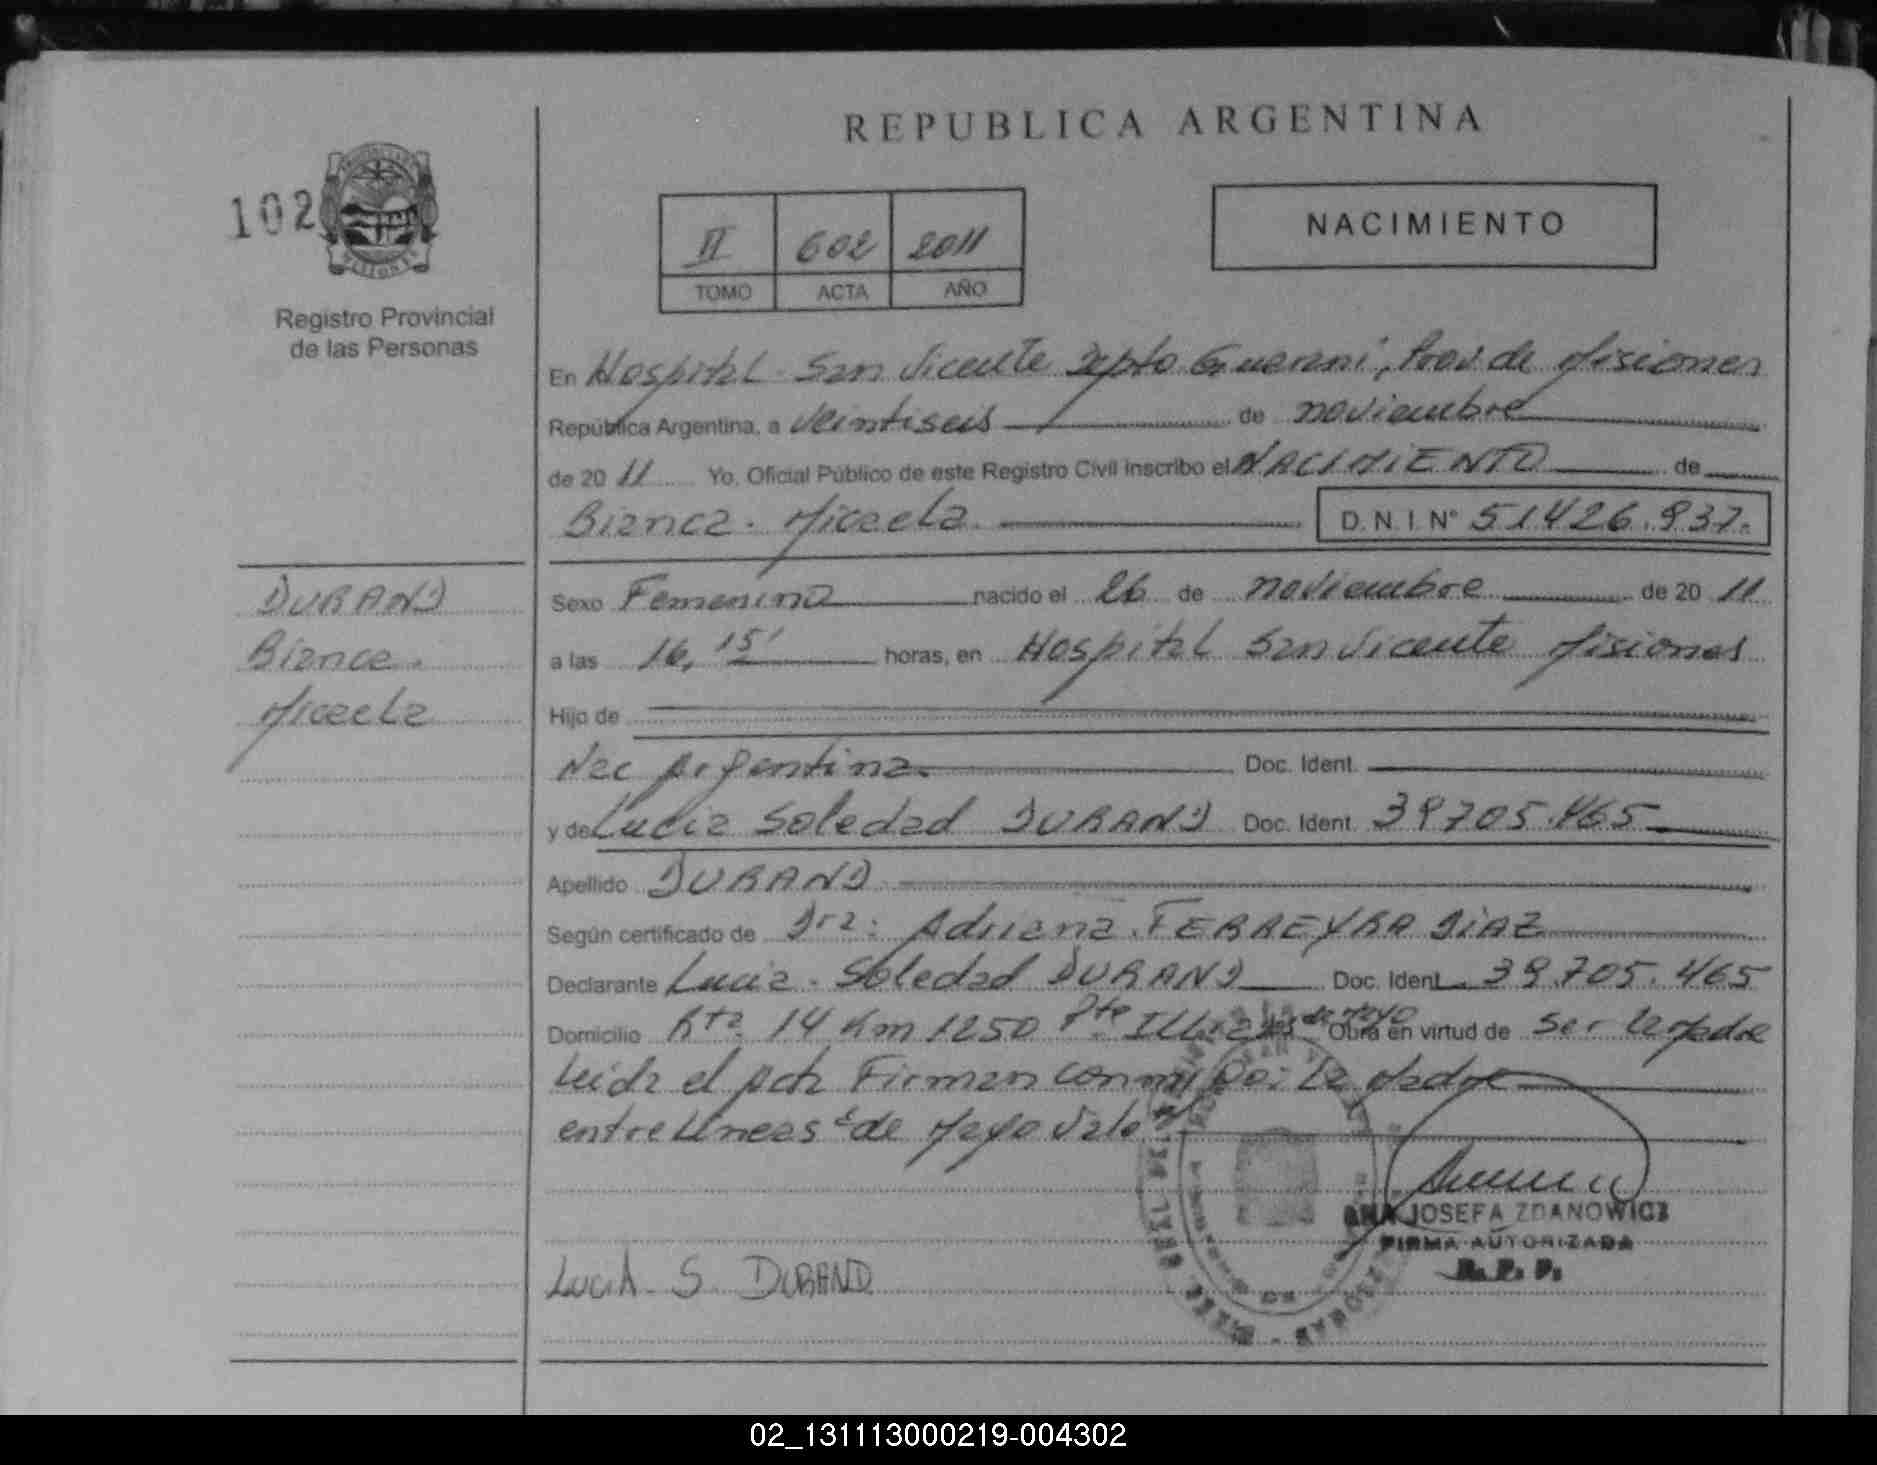 REPUBLICA ARGENTINA
102
NACIMIENTO
II 602 2011
TOMO ACTA AÑO
Registro Provincial
de las Personas
En Hospital San Vicente Depto Guarani, Prov de Misiones
República Argentina, a veintiseis de noviembre
de 2011 Yo. Oficial Público de este Registro Civil inscribo el NACIMIENTO de
Bianca. Micaela. D. N. I. N° 51.426.937.
DURAND
Bianca.
Micaela
Sexo Femenino nacido el 26 de noviembre de 2011
a las 16,15' horas, en Hospital San Vicente Misiones
Hijo de
Nac Argentina. Doc. Ident.
y de Lucia Soledad DURAND Doc. Ident. 39705.465
Apellido DURAND
Según certificado de Dra: Adriana FERREYRA DIAZ
Declarante Lucia. Soledad DURAND Doc. Ident. 39.705.465
Domicilio Rta 14 Km 1250 Pte de Mayo Obra en virtud de Ser la Madre
Leida el Acta Firman conmigo: La Madre
entre Lineas "de Mayo Vale"
ANA JOSEFA ZDANOWICZ
FIRMA AUTORIZADA
R. P. P.
LUCIA S. DURAND
02_131113000219-004302